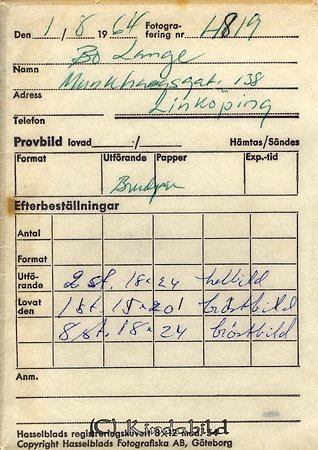 Den 1/8 1964 Fotogra-
fering nr 4819
Bo Lange
Namn
Munkhagsgat. 138
Adress
Linköping
Telefon
Provbild lovad / Hämtas/Sändes
Format Utförande Papper Exp.-tid
Efterbeställningar
Antal
Format
Utfö-
rande 2 st. 18×24 helbild
Lovat
den 1 st. 15×201 bröstbild
8 st. 18×24 bröstbild
Anm.
(C) Kindabild
Hasselblads registreringskuvert 8×12 mod. 54
Copyright Hasselblads Fotografiska AB, Göteborg